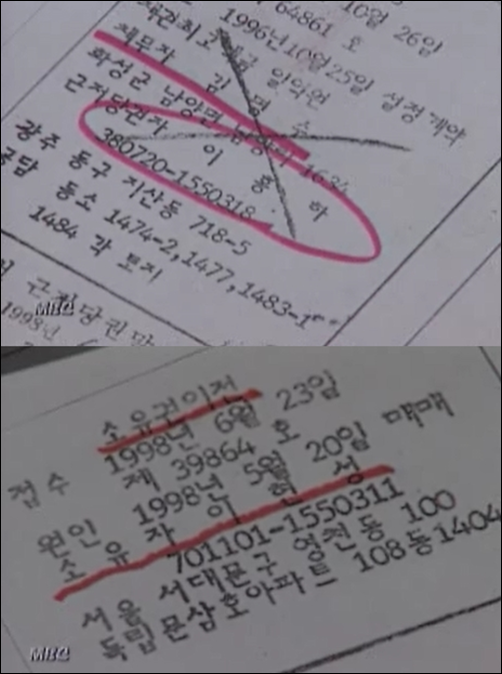 10월 26일
64861 호
1996년10월25일 설정계약
일억원
채무자 김 명 수
화성군 남양면 1634
근저당권자 이 홍 하
380720-1550318
광주 동구 지산동 718-5
공담 동소 1474-2,1477,1483-1
1484 각 토지
근저당권
1998년
MBC
소유권이전
접수 1998년 6월 23일
제 39864 호
원인 1998년 5월 20일 매매
소 유 자 이 성
701101-1550311
서울 서대문구 영천동 100
독립문삼호아파트 108동1404
MBC